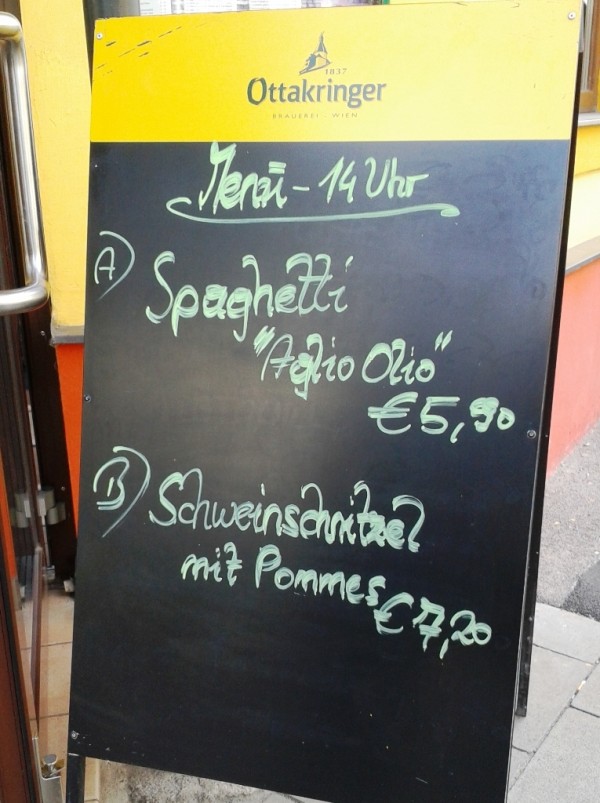 1837
Ottakringer
BRAUEREI WIEN
Menü - 14 Uhr
A) Spaghetti
"Aglio Olio"
€5,90
B) Schweinschnitzel
mit Pommes
€7,20